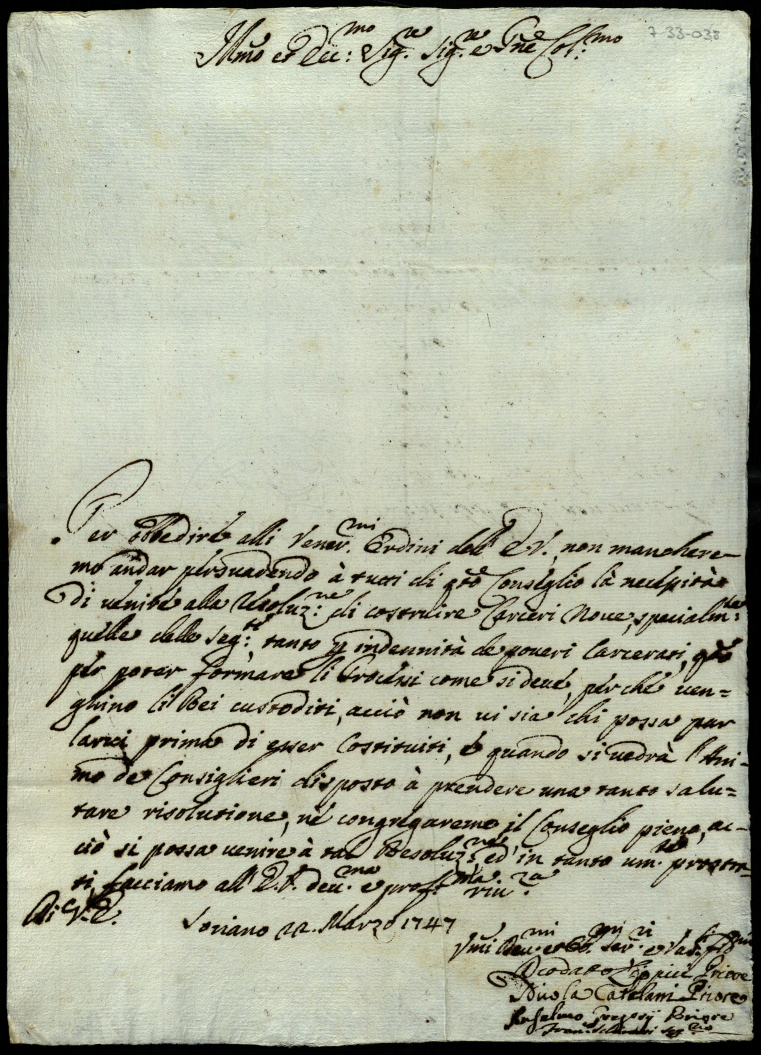 7 33-038
Illmo et Ecc:mo Sig.re Sig.re e Pne Col:mo
Per obbedire alli Vener.mi Ordini dell'E.V., non manchere=
mo andar persuadendo à tutti di qto Consiglio la necessità
di venire alla Resoluz:ne di costruire Carceri Nove, specialmte
quelle delle Seg:te, tanto p indennità de poveri Carcerati, qto
per poter formare li Processi come si deve, perché ven=
ghino li Rei custoditi, acciò non vi sia chi possa par
larci prima di esser Costituiti, e quando si vedrà l'Ani=
mo de Consiglieri disposto à prendere una tanto salu=
tare risolutione, ne congregaremo il Conseglio pieno, ac=
ciò si possa venire à tal Resoluz:ne, ed in tanto um.te prostra=
ti, facciamo all'E.V. dev.ma e prof.ma riv.za
Di V.E.
Soriano 22. Marzo 1747
Vmi Dev.mi et Obb.mi Ser.ri e
Deodato Priore
Nicola Catalani Priore
Anselmo Gregorij Priore